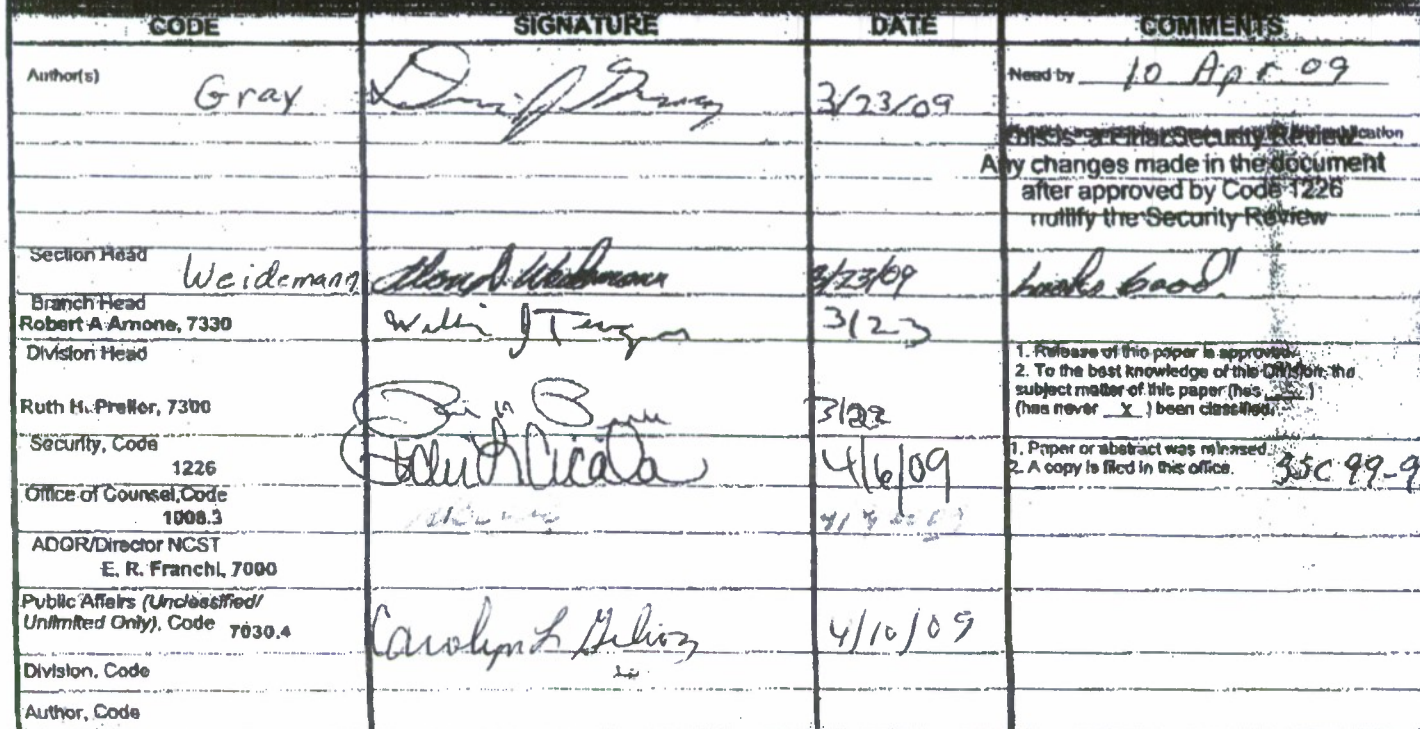 CODE SIGNATURE DATE COMMENTS
Author(s) Gray 3/23/09 Need by 10 Apr 09
This is a Final Security Review
Any changes made in the document
after approved by Code 1226
nullify the Security Review
Section Head
Weidemann 3/23/09 Looks Good!
Branch Head
Robert A Arnone, 7330 3/23
Division Head
1. Release of this paper is approved.
2. To the best knowledge of this Division, the
subject matter of this paper (has ____ )
(has never __X__ ) been classified.
Ruth H. Preller, 7300 3/23
Security, Code
1226 4/6/09
1. Paper or abstract was released.
2. A copy is filed in this office. SSC 99-9
Office of Counsel, Code
1008.3
ADOR/Director NCST
E. R. Franchi, 7000
Public Affairs (Unclassified/
Unlimited Only), Code 7030.4 Carolyn L 4/10/09
Division, Code
Author, Code